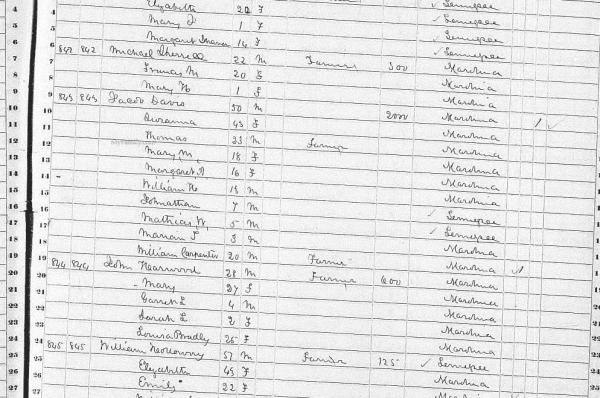 4 Elyabeth 22 F ✓ Tennepee 4
5 Mary J 1 F ✓ Tennepee 5
6 Margaret 14 F ✓ Tennepee 6
7 842 842 Michael Sherrell 22 M Farmer 300 ✓ Tennepee
8 Francis M 20 F N Carolina 7
9 Mary N 1 F N Carolina 8
10 843 843 Jacob Davis 50 M 2000 N Carolina 9
11 Susanna 43 F N Carolina 1 ✓ 10
12 Thomas 23 M Farmer N Carolina 11
13 Mary M 18 F N Carolina 12
14 Margaret A 16 F N Carolina 13
15 William H 13 M N Carolina 14
16 Johnathan 7 M N Carolina 15
17 Mathias W. 5 M ✓ Tennepee 16
18 Marian F 3 M ✓ Tennepee 17
19 William Carpenter 20 M Farmer N Carolina 18
20 844 844 John Harwood 28 M Farmer 600 N Carolina 1 19
21 Mary 27 F N Carolina 20
22 Garrett L 4 M N Carolina 21
23 Sarah L 2 F N Carolina 22
24 Louisa Bradly 25 F N Carolina 23
25 845 845 William 57 M Farmer 125 N Carolina 24
26 Elyabeth 45 F ✓ Tennepee 25
27 Emily 22 F N Carolina
27 N Carolina